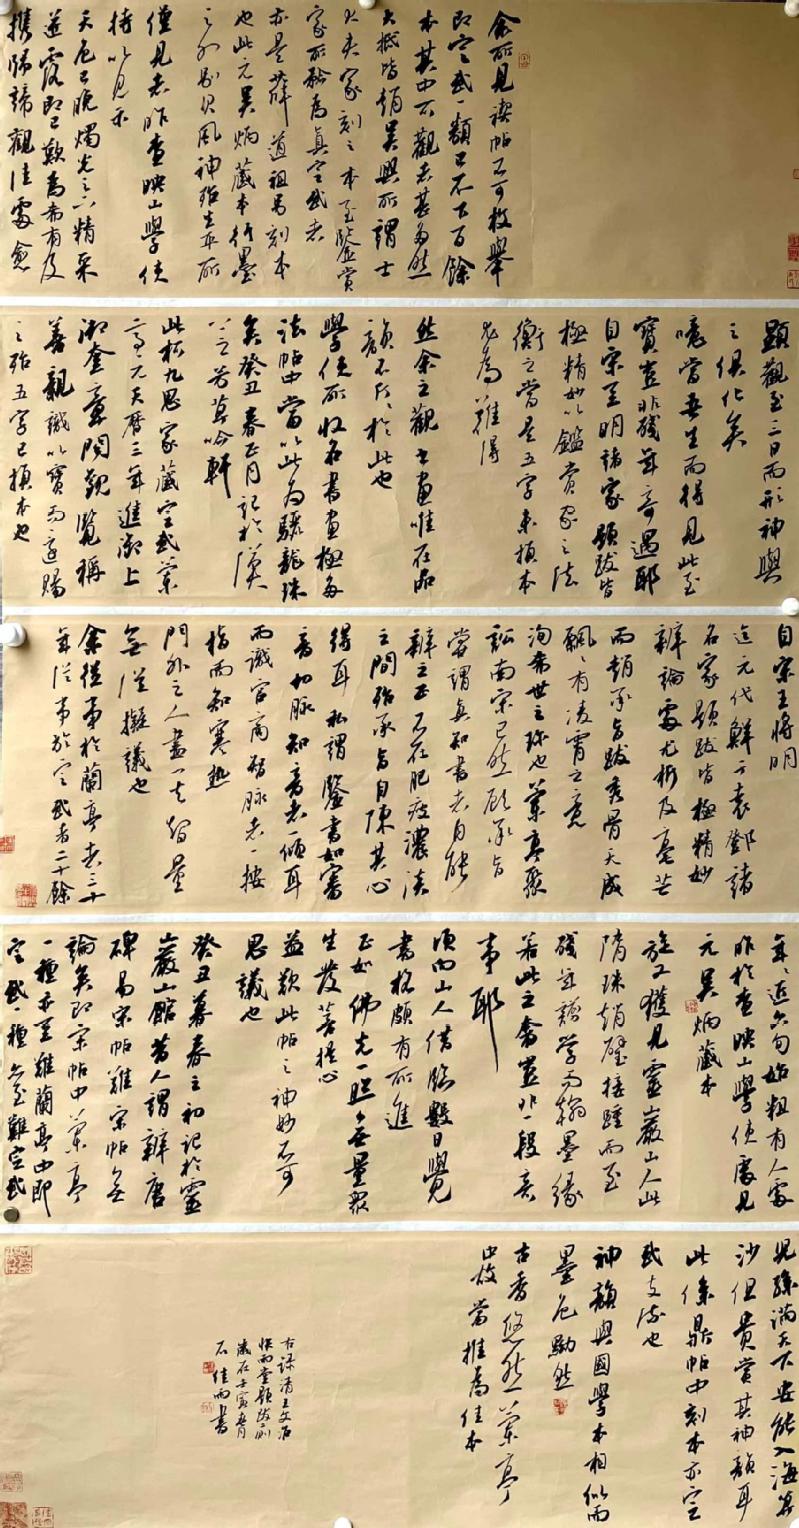 余所見禊帖不可枚舉
即定武一類已不下百餘
本其中不觀者甚多然
大抵皆趙吳興所謂士
大夫家刻之本至鑒賞
家所矜為真定武者
亦是薛道祖另刻本
也此元吳炳藏本紙墨
之外別具風神殆生平所
僅見者昨查映山學使
持以見示
天色已晚燭光之下精采
迸露即已歎為希有及
攜歸諦觀佳處愈
顯觀至三日而形神與
之俱化矣
噫當吾生而得見此至
寶豈非殘年奇遇耶
自宋至明諸家題跋皆
極精妙以鑑賞家之法
衡之當是五字未損本
尤為難得
然余之觀書畫唯在品
韻不斤斤於此也
學使所收名書畫極多
法帖中當以此為驪龍珠
矣癸丑春正月記於漢
上之芳草吟軒
此柯九思家藏定武蘭
亭元天曆三年進御上
御奎章閣觀覽稱
善親識以寶而還賜
之殆五字已損本也
自宋王將明
迄元代鮮于袁鄧諸
名家題跋皆極精妙
辨論處尤析及毫芒
而趙承旨跋秀骨天成
飄飄有凌霄之意
洵希世之珍也蘭亭聚
訟南宋已然顧承旨
嘗謂真知書者自能
辨之正不在肥瘦濃淡
之間殆承旨自陳其心
得耳私謂鑒書如審
音切脈知音者一傾耳
而識宮商智脈者一按
指而知寒熱
門外之人盡一夫智量
無從擬議也
余從事於蘭亭者三十
年從事於定武者二十餘
年年近六旬始粗有入處
昨於查映山學使處見
元吳炳藏本
旋又獲見靈巖山人此
隋珠趙璧接踵而至
殘年積學而翰墨緣
若此之奢豈非一段奇
事耶
須向山人借臨數日覺
書格頗有所進
正如佛光一照無量眾
生發菩提心
益歎此帖之神妙不可
思議也
癸丑暮春之初記於靈
巖山館昔人謂辨唐
碑易宋帖難宋帖無
論矣即宋帖中蘭亭
一種亦至難蘭亭內即
定武一種亦至難定武
兒孫滿天下安能入海算
沙但貴賞其神韻耳
此係鼎帖中刻本亦定
武支流也
神韻與國學本相似而
墨色黝然
古香悠然蘭亭
中當推為佳本
右錄清王文治
快雨堂題跋二則
歲在壬寅春月
石佳雨書